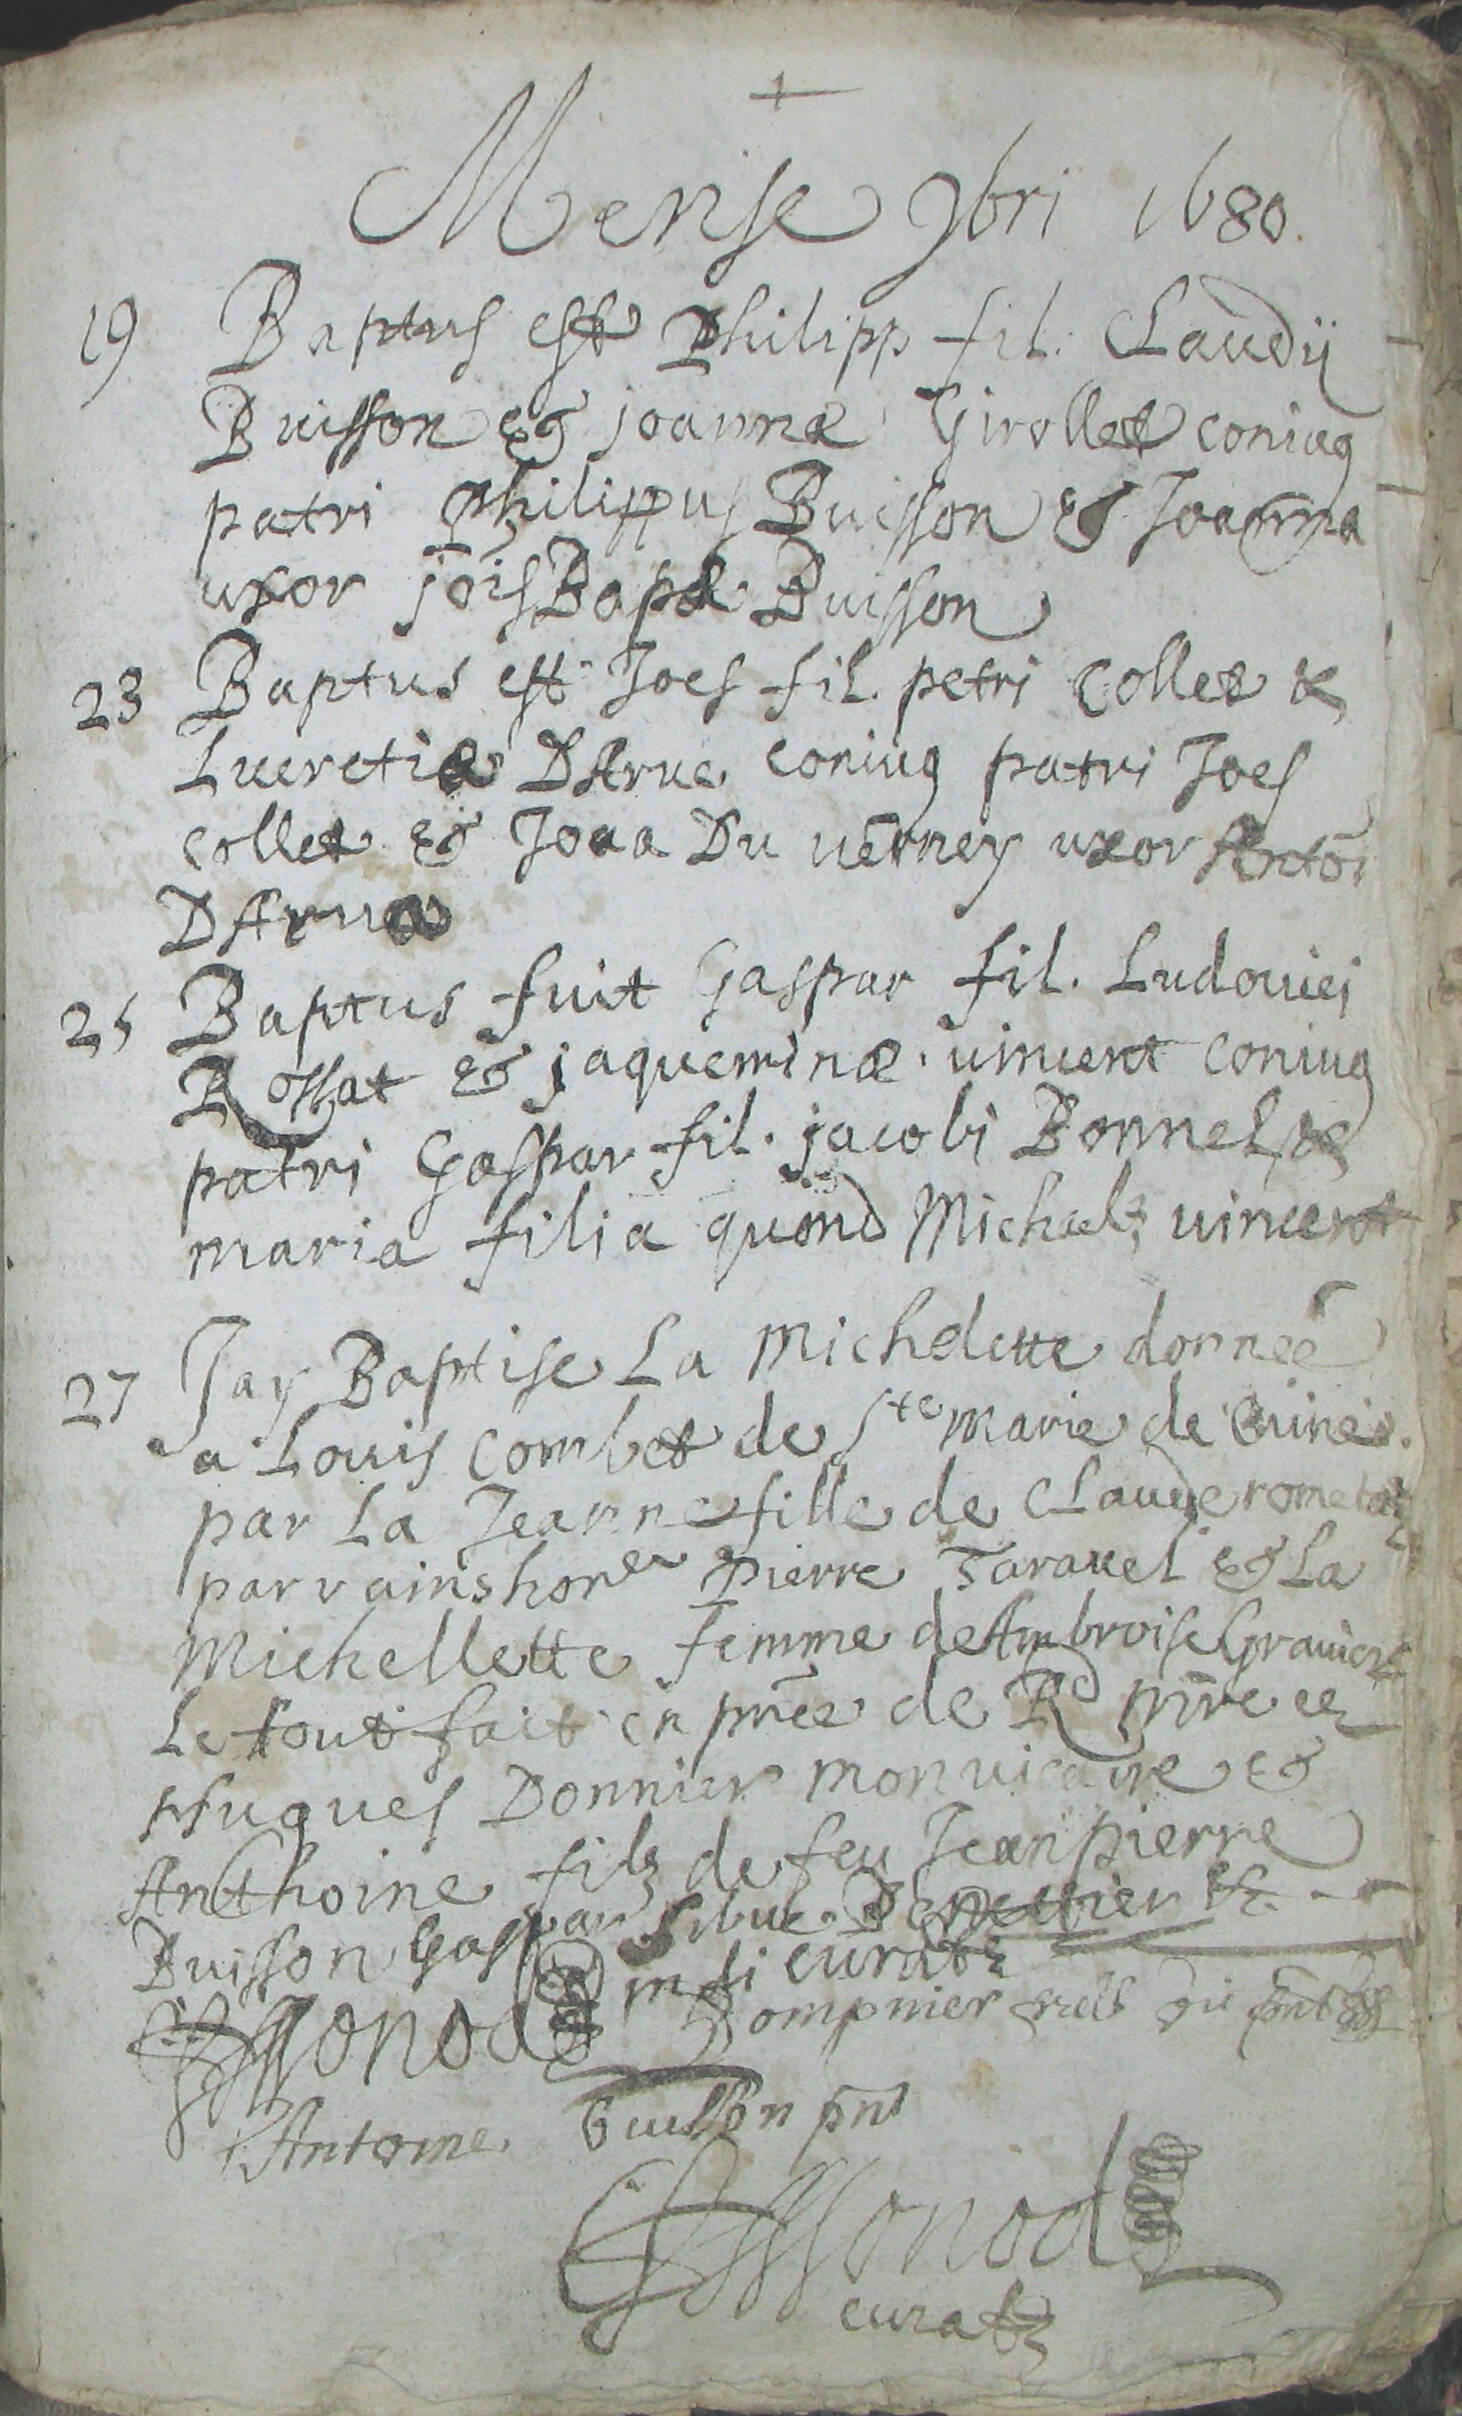 Mense 9bri 1680.
19 Baptus est Philipp fil. Claudij
Buisson & joannæ Girollet coniug
patri philippus Buisson & Joanna
uxor jois Bapt Buisson
23 Baptus est Joes fil. petri collet &
Lucretiæ DArue coniug patri Joes
collet & Joaa Du uerney uxor Antoi
DArue
25 Baptus fuit Gaspar fil. Ludouici
Rossat & jaqueminæ uincent coniug
patri Gaspar fil. jacobi Bonnel &
maria filia quond Michaelis uincent
27 Jay Baptise La Michelette donnée
a Louis combet de Ste marie de Cuines.
par La Jeanne fille de Claude rometaz
parrains honer Pierre Tarauel & La
Michellette femme de Ambroise Grauier
Le tout fait en pnce de Rd mre
Hugues Donnier mon uicaire &
Anthoine filz de feu Jean pierre
Buisson Gaspar
Monod curatz
Dompnier
Antoine buisson pnt
Monod
curatz